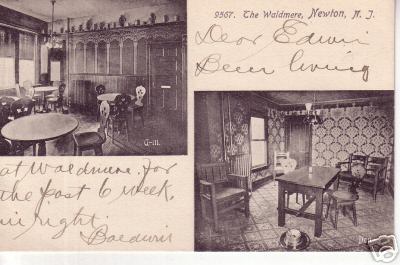 9567. The Waldmere, Newton, N. J.
Dear Edwin
Been living
G-ill.
at Waldmere. For
the past 6 week,
right.
Baldwin